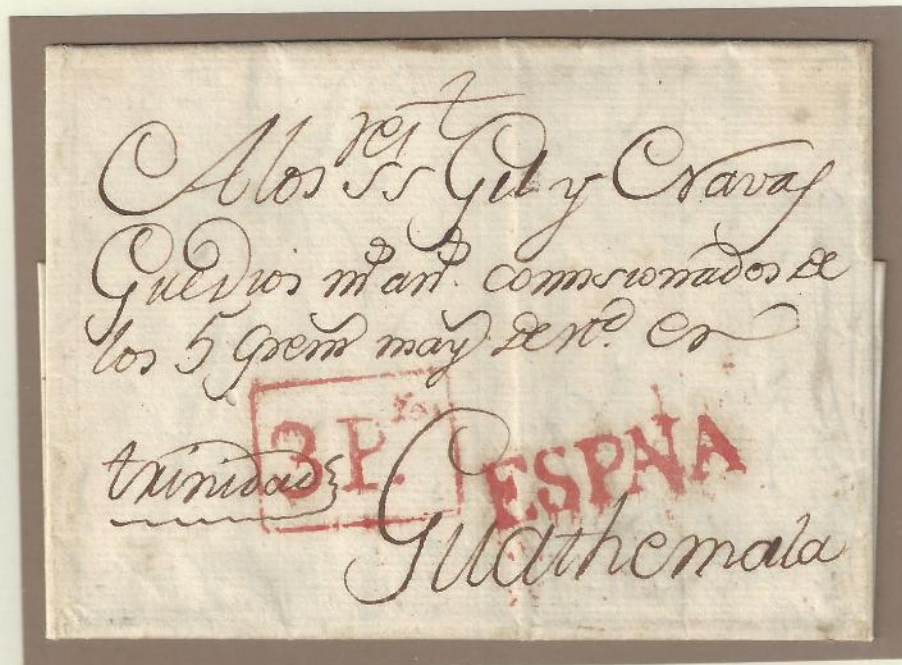 A los Ss^res Gil y Navas
Gue Dios m^s an^s comisionados de
los 5 Grem^s may^s de M^d en
3 P.
ESPNA
trinidad
Guathemala